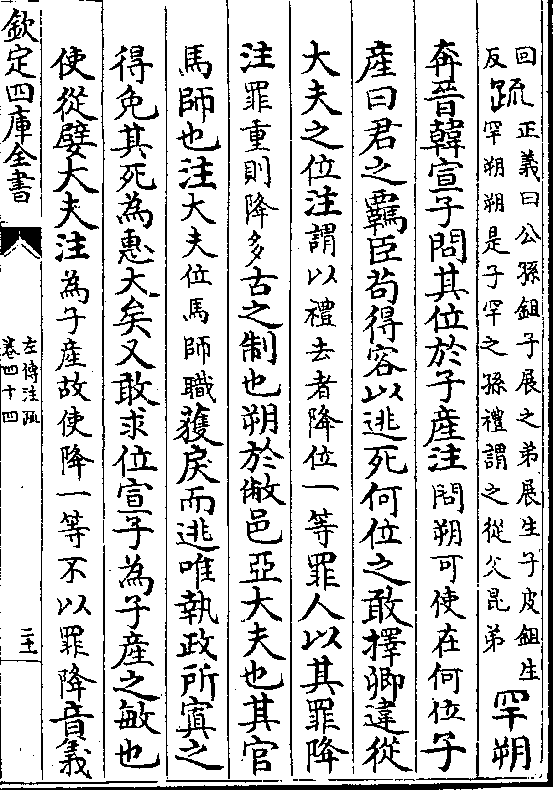 回
反疏正義曰公孫鉏子展之弟展生子皮鉏生
罕朔朔是子罕之孫禮謂之從父昆弟
罕朔
奔晉韓宣子問其位於子產注問朔可使在何位子
產曰君之羈臣苟得容以逃死何位之敢擇卿違從
大夫之位注謂以禮去者降位一等罪人以其罪降
注罪重則降多古之制也朔於敝邑亞大夫也其官
馬師也注大夫位馬師職獲戾而逃唯執政所寘之
得免其死為惠大矣又敢求位宣子為子產之敏也
使從嬖大夫注為子產故使降一等不以罪降音義
欽定四庫全書
左傳注疏
卷四十四
二十